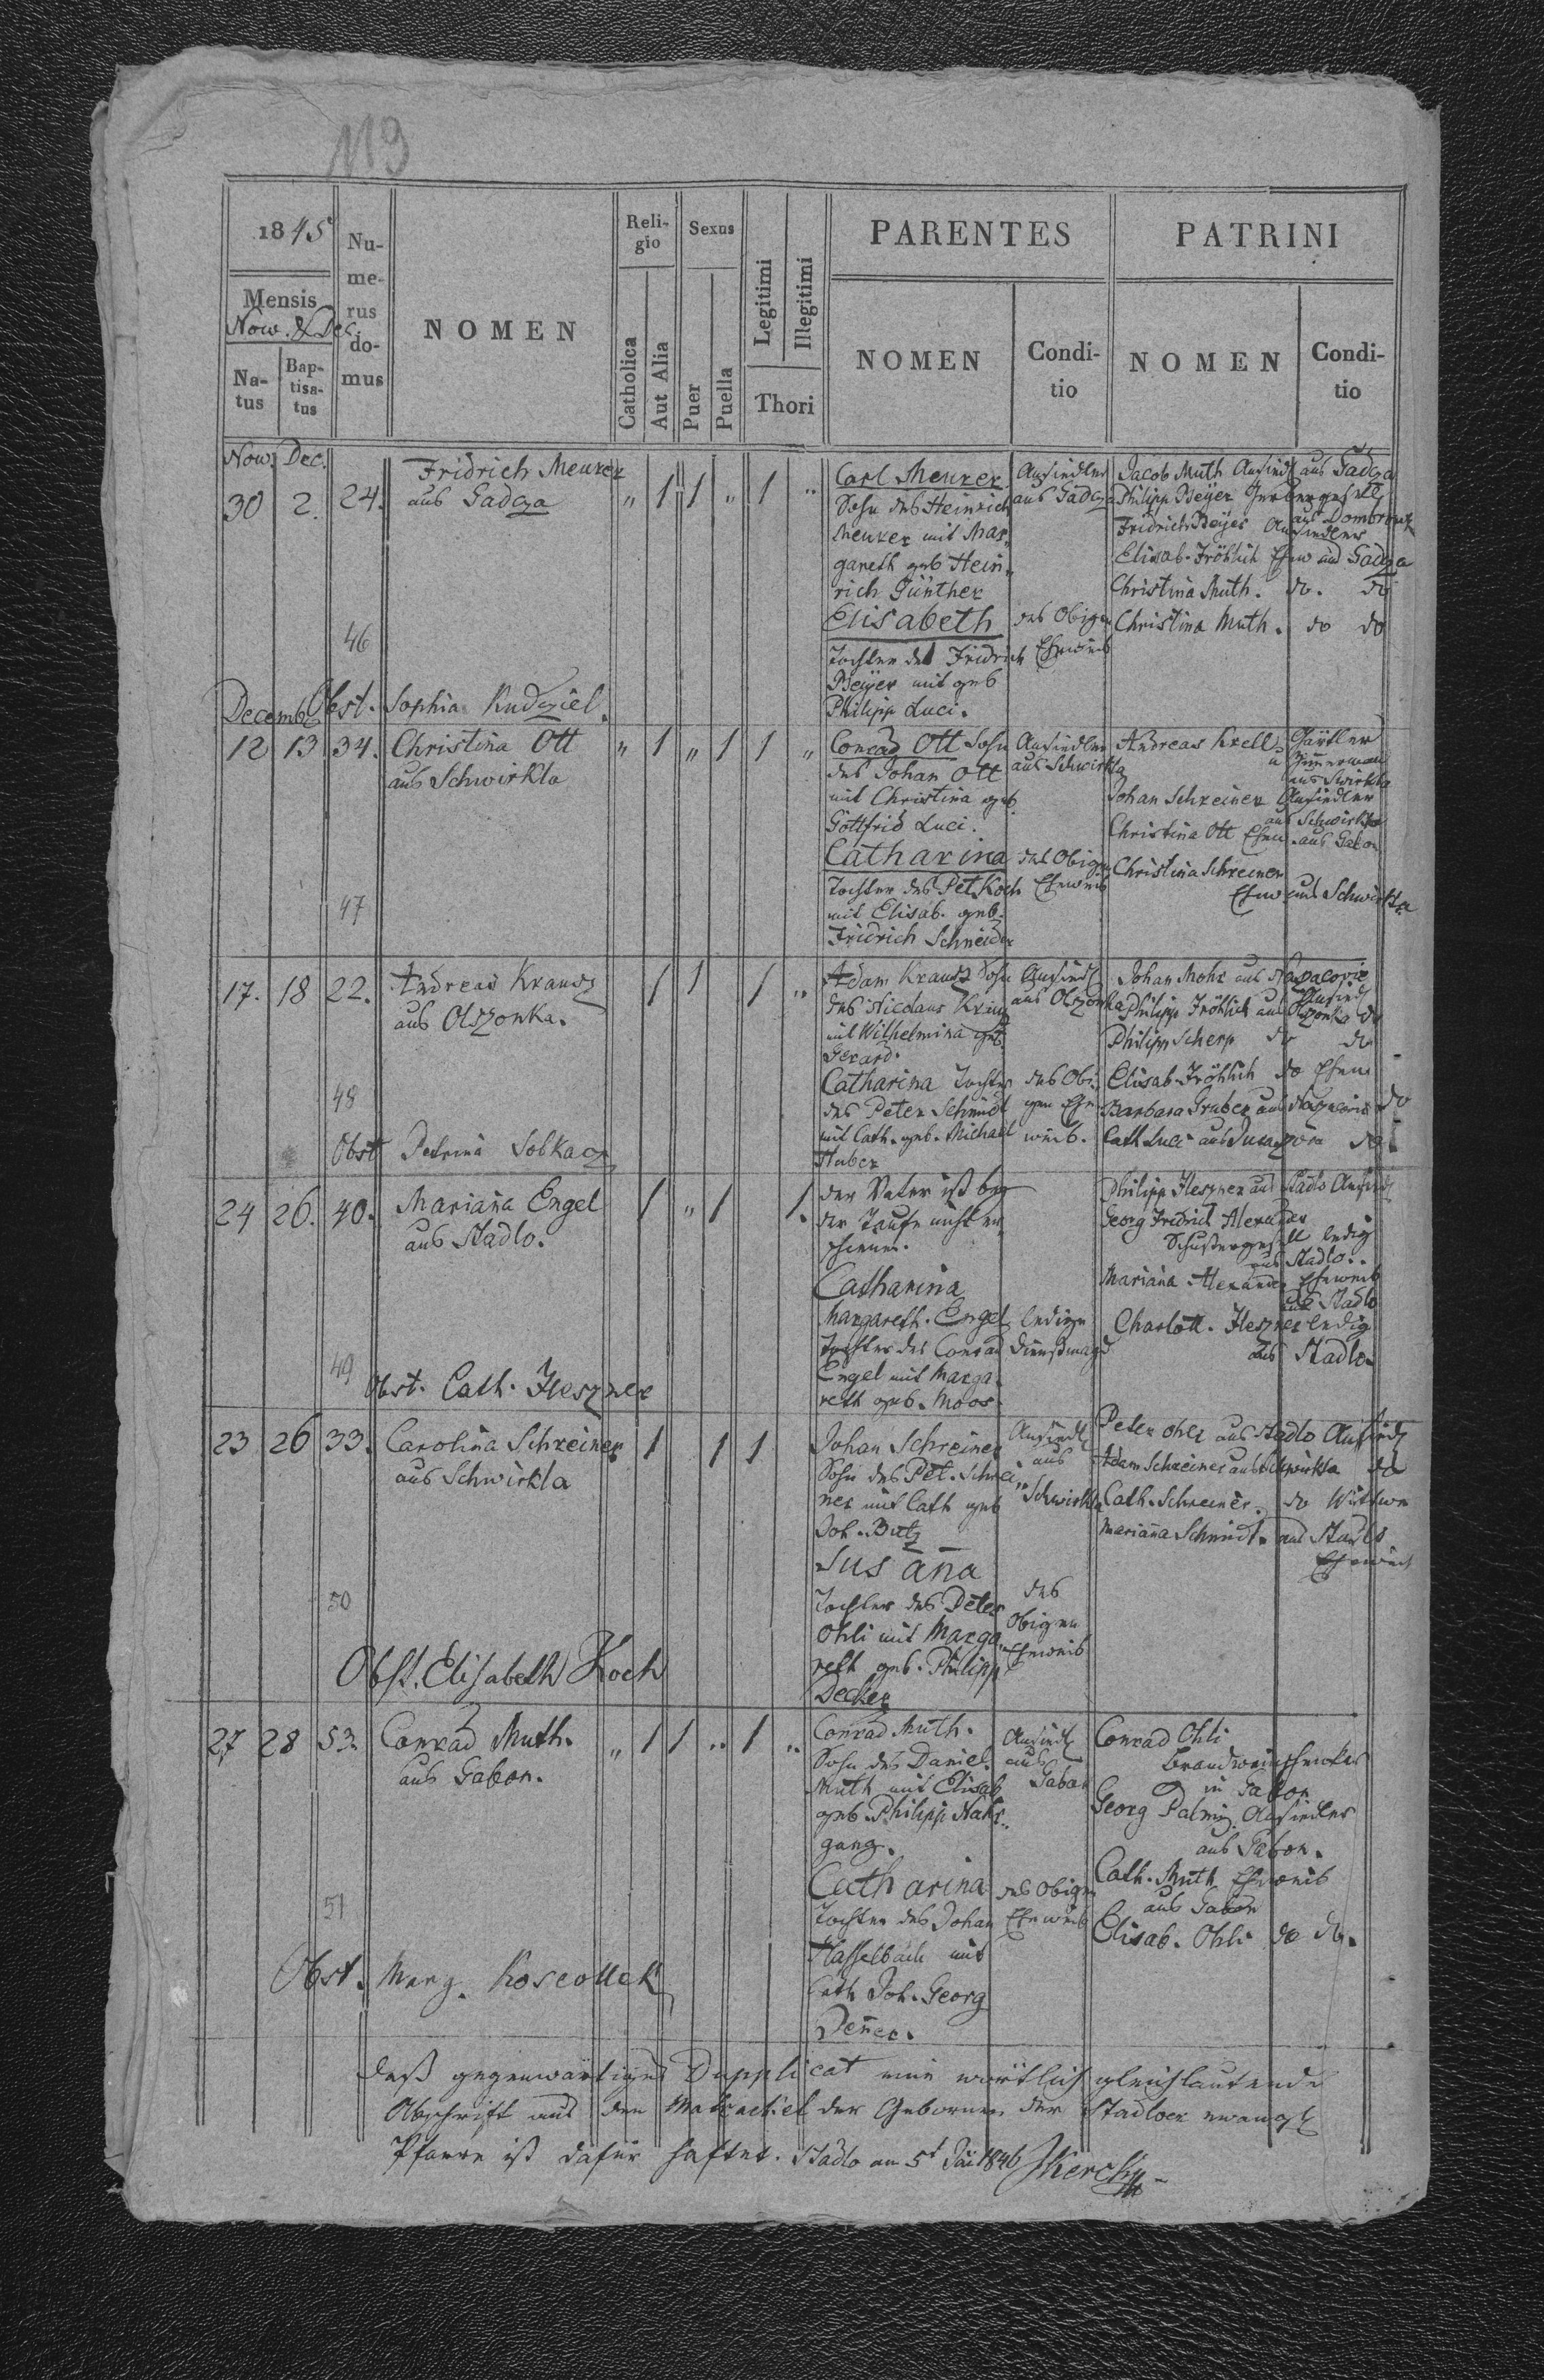 119
1845
Mensis
Now. & Dec.
Natus
Baptisatus
Numerus domus
NOMEN
Religio
Catholica
Aut Alia
Sexus
Puer
Puella
Legitimi
Illegitimi
Thori
PARENTES
NOMEN
Conditio
PATRINI
NOMEN
Conditio
Now. Dec.
30 2. 24.
Fridrich Meurer
aus Gadcza
„ 1 1 „ 1 „
Carl Meurer
Sohn des Heinrich
Meurer mit Mar„
gareth geb Hein„
rich Günther
Ansiedler
aus Gadcza
Elisabeth
Tochter des Fridrich
Beÿer mit geb
Philipp Luci.
des Obigen
Eheweib
Jacob Muth Ansiedl aus Gadcza
Philipp Beÿer Gerbergesell
aus Dombrowk
Fridrich Beÿer Ansiedler
Elisab. Fröhlich Ehew aus Gadcza
Christina Muth. do. do
Christina Muth. do do
46
Decemb.
Obst. Sophia Kudziel.
12 13 34.
Christina Ott
aus Schwirkla
„ 1 „ 1 1 „
Conrad Ott Sohn
des Johan Ott
mit Christina geb
Gottfrid Luci.
Ansiedler
aus Schwirkla
Catharina
Tochter des Pet. Koch
mit Elisab. geb.
Fridrich Schneider
des Obigen
Eheweib
Andreas Krell
u Zimmerman
aus Swirkla
Johan Schreiner Ansiedler
aus Schwirkla
Christina Ott Ehew. aus Gabon
Christina Schreiner
Ehew aus Schwirkla
47
17. 18 22.
Andreas Krausz
aus Olszonka.
1 1 1 „
Adam Krausz Sohn
des Niclaus
mit Wilhelmina geb.
Gerard.
Ansiedl
aus Olszonka
Catharina Tochter
des Peter Schmidt
mit Cath. geb. Michael
Huber
des Obi„
gen Ehe
weib.
Johan Mohr aus
Ansiedl
Philipp Fröhlich aus Olszonka do
Philipp Scherp do do
Elisab. Fröhlich do Ehew
Barbara Gruber aus do
Cath Luci aus do
48
Obst Petrina Sobkacz
24 26. 40.
Mariana Engel
aus Stadlo.
1 „ 1 1.
der Vater ist bey
der Taufe nicht er„
schienen.
Catharina
Margareth. Engel
Tochter des Conrad
Engel mit Marga„
reth geb. Moos
ledige
Dienstmagd
Philipp Heszner aus Stadlo Ansiedl
Georg Fridrich Alexander
Schustergesell ledig
aus Stadlo..
Mariana Alexander Eheweib
aus Stadlo
Charlott. Heszner ledig
aus Stadlo.
49
Obst. Cath. Heszner
23 26 33.
Carolina Schreiner
aus Schwirkla
1 1 1
Johan Schreiner
Sohn des Pet. Schrei„
ner mit Cath geb
Joh. Butz
Ansiedl
aus
Schwirkla
Susana
Tochter des Peter
Ohli mit Marga„
reth geb. Philipp
Decker
des
Obigen
Eheweib
Peter Ohli aus Stadlo Ansiedl
Adam Schreiner aus Schwirkla do
Cath. Schreiner. do Wittwe
Mariana Schmidt. aus Stadlo
Eheweib
50
Obst. Elisabeth Koch
27 28 53.
Conrad Muth.
aus Gabon.
„ 1 1 .. 1 ..
Conrad Muth.
Sohn des Daniel
Muth mit Elisab
geb. Philipp Nahr„
gang.
Ansiedl
aus
Gabon
Catharina
Tochter des Johan
Hasselbach mit
Cath Joh. Georg
Denner.
des Obigen
Eheweib
Conrad Ohli
Brandweinschenker
in Gabon
Georg Palmy. Ansiedler
aus Gabon.
Cath. Muth Eheweib
aus Gabon
Elisab. Ohli do do.
51
Obst. Marg. Koscollek
Daß gegenwärtiges Dupplicat eine wörtlich gleichlautende
Abschrift aus der Matrickel der Gebornen der Stadloer ewangl
Pfarre ist dafür haftet. Stadlo am 5t Jäi 1846